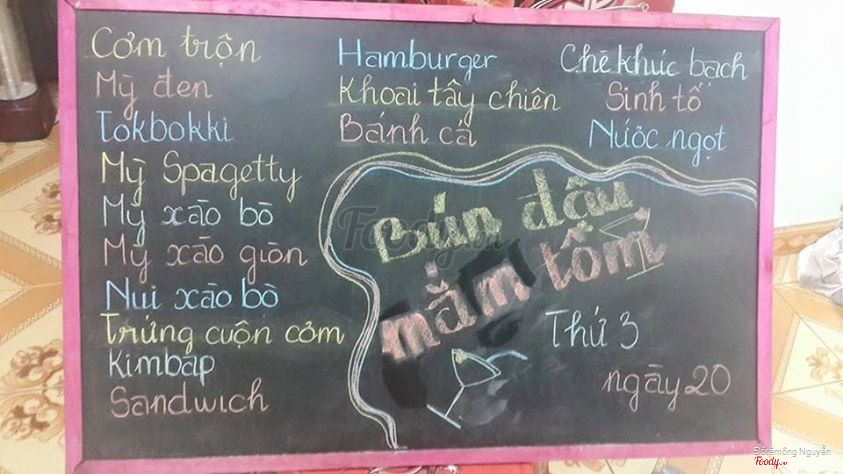 Cơm trộn
Mỳ đen
Tokbokki
Mỳ Spagetty
Mỳ xào bò
Mỳ xào giòn
Nui xào bò
Trứng cuộn cơm
Kimbap
Sandwich
Hamburger
Khoai tây chiên
Bánh cá
Chè khúc bạch
Sinh tố
Nước ngọt
Bún đậu
mắm tôm
Thứ 3
ngày 20
Foody.vn
Đôrêmông Nguyễn
Foody.vn